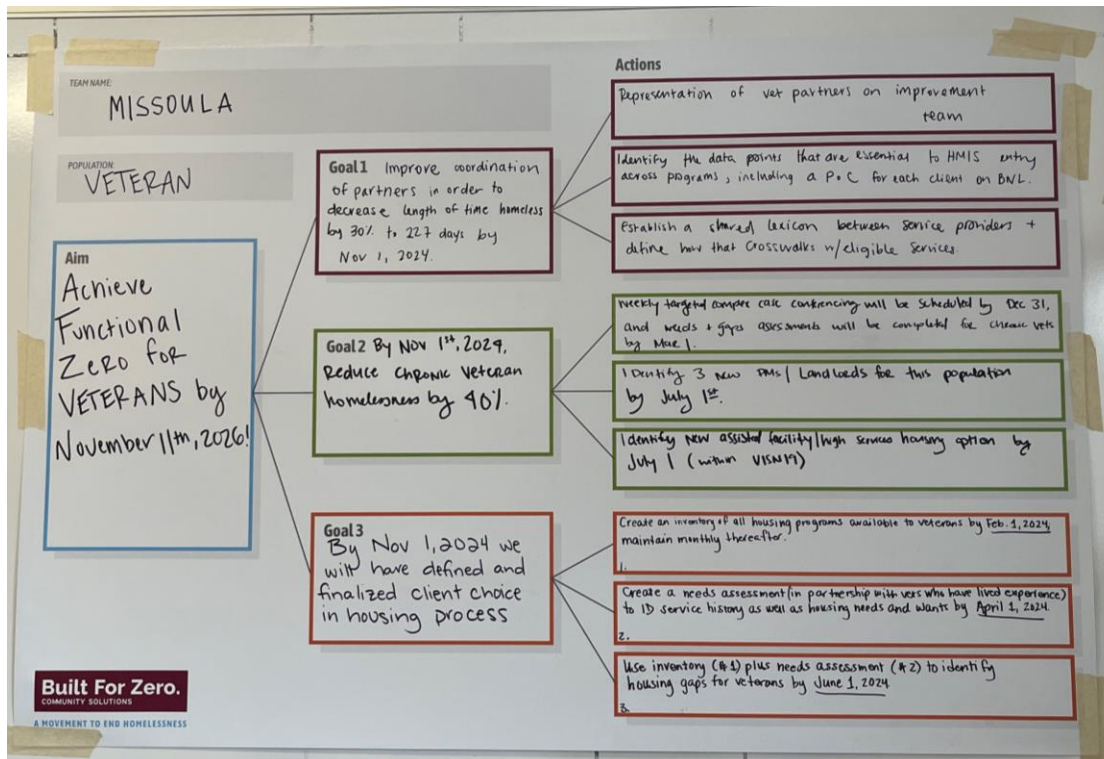 TEAM NAME:
MISSOULA
POPULATION:
VETERAN
Aim
Achieve
Functional
Zero for
VETERANS by
November 11th, 2026!
Goal 1 Improve coordination
of partners in order to
decrease length of time homeless
by 30% to 227 days by
Nov 1, 2024.
Goal 2 By Nov 1st, 2024,
Reduce Chronic Veteran
homelessness by 40%.
Goal 3
By Nov 1, 2024 we
will have defined and
finalized client choice
in housing process
Actions
Representation of vet partners on improvement
team
Identify the data points that are essential to HMIS entry
across programs, including a PoC for each client on BNL.
Establish a shared lexicon between service providers +
define how that crosswalks w/eligible services.
Weekly targeted case conferencing will be scheduled by Dec 31,
and needs + gaps assessments will be completed for chronic vets
by Mar 1.
Identify 3 new PMs / Landlords for this population
by July 1st.
Identify New assisted facility/high services housing option by
July 1 (within VISN19)
Create an inventory of all housing programs available to veterans by Feb. 1, 2024,
maintain monthly thereafter.
1.
Create a needs assessment (in partnership with vets who have lived experience)
to ID service history as well as housing needs and wants by April 1, 2024.
2.
Use inventory (#1) plus needs assessment (#2) to identify
housing gaps for veterans by June 1, 2024
3.
Built For Zero.
COMMUNITY SOLUTIONS
A MOVEMENT TO END HOMELESSNESS